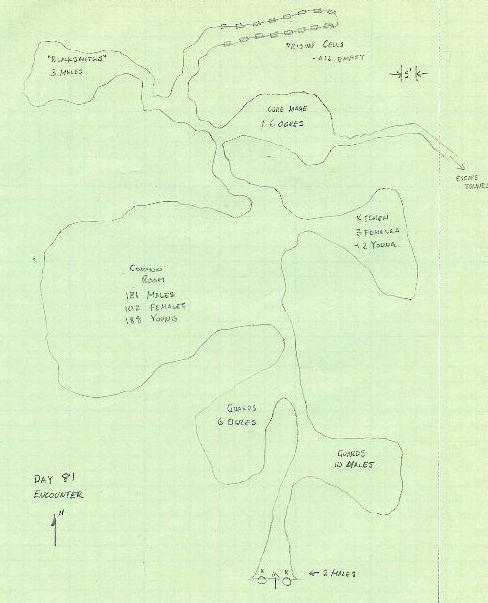 "BLACKSMITHS"
3 MALES
PRISON CELLS
- ALL EMPTY
5'
6 OGRES
ESCAPE
TUNNEL
KITCHEN
3 FEMALES
2 YOUNG
COMMON
ROOM
181 MALES
102 FEMALES
188 YOUNG
GUARDS
6 OGRES
GUARDS
10 MALES
DAY 81
ENCOUNTER
N
X X
2 MALES